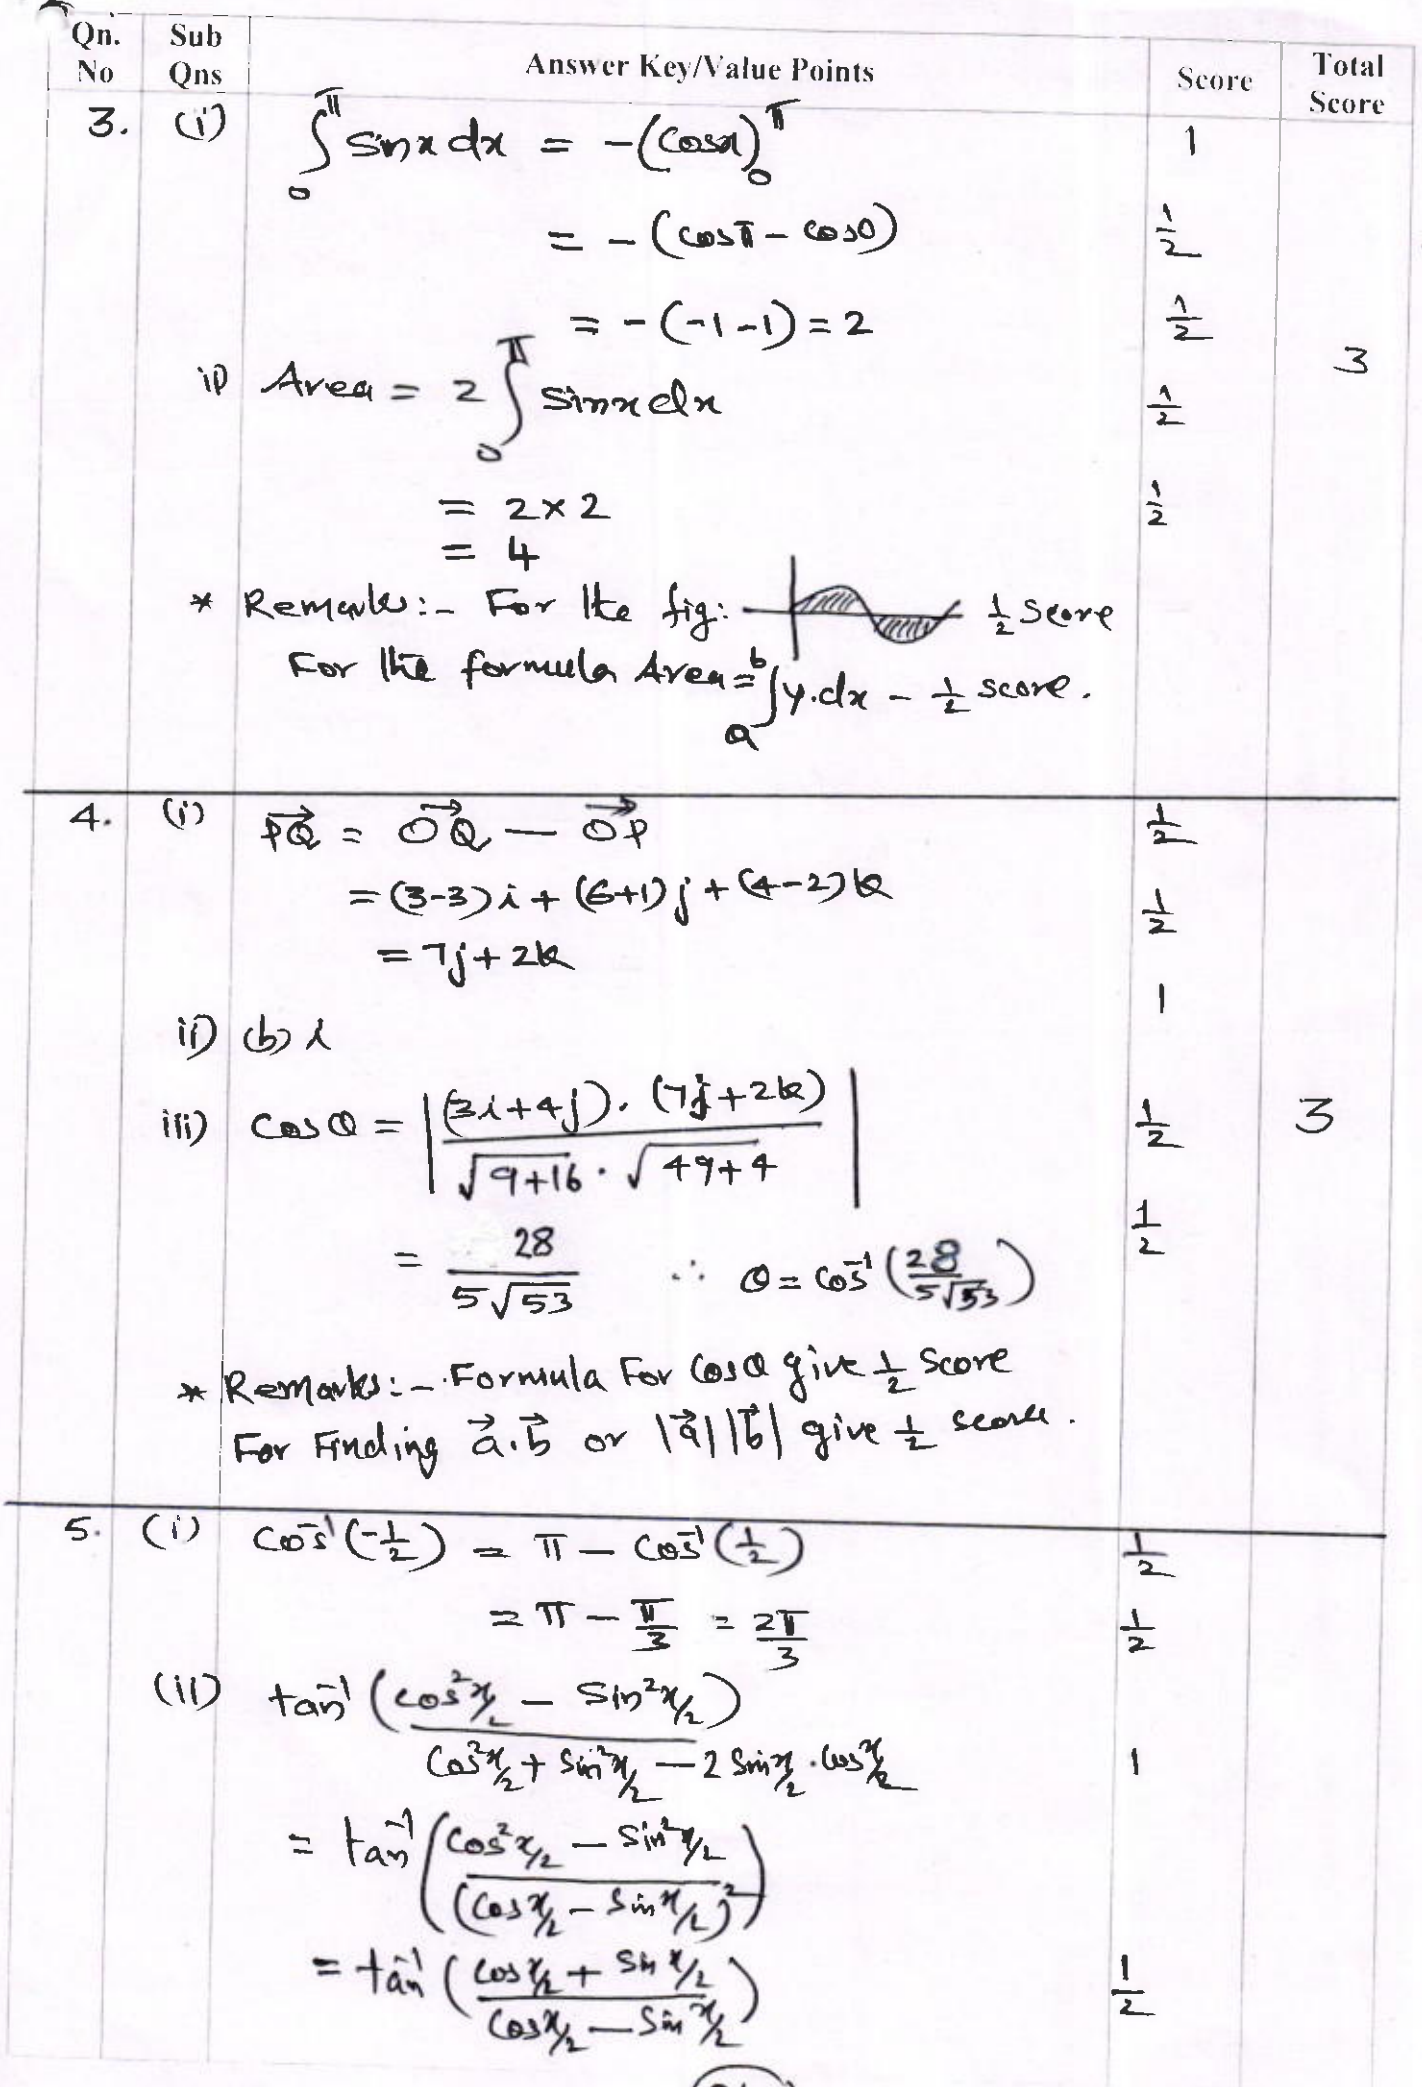 Qn. No Sub Qns Answer Key/Value Points Score Total Score
3. (i) ∫₀^π sinx dx = -(cosx)₀^π 1
= -(cosπ - cos0) 1/2
= -(-1-1) = 2 1/2
3
ii) Area = 2 ∫₀^π sinx dx 1/2
= 2×2 1/2
= 4
* Remarks:- For the fig: 1/2 Score
For the formula Area = ∫ₐᵇ y.dx - 1/2 score.
4. (i) PQ⃗ = OQ⃗ - OP⃗ 1/2
= (3-3)i + (6+1)j + (4-2)k 1/2
= 7j + 2k
1
ii) (b) i
iii) cosθ = |(3i+4j). (7j+2k) / √9+16 . √49+4| 1/2 3
= 28/5√53 ∴ θ = cos⁻¹(28/5√53) 1/2
* Remarks:- Formula For Cosθ give 1/2 Score
For Finding a⃗.b⃗ or |a⃗||b⃗| give 1/2 score.
5. (i) Cos⁻¹(-1/2) = π - Cos⁻¹(1/2) 1/2
= π - π/3 = 2π/3 1/2
(ii) tan⁻¹(cos²x/2 - Sin²x/2 / Cos²x/2 + Sin²x/2 - 2 Sinx/2 . Cosx/2) 1
= tan⁻¹(Cos²x/2 - Sin²x/2 / (Cosx/2 - Sinx/2)²)
= tan⁻¹(Cosx/2 + Sinx/2 / Cosx/2 - Sinx/2) 1/2